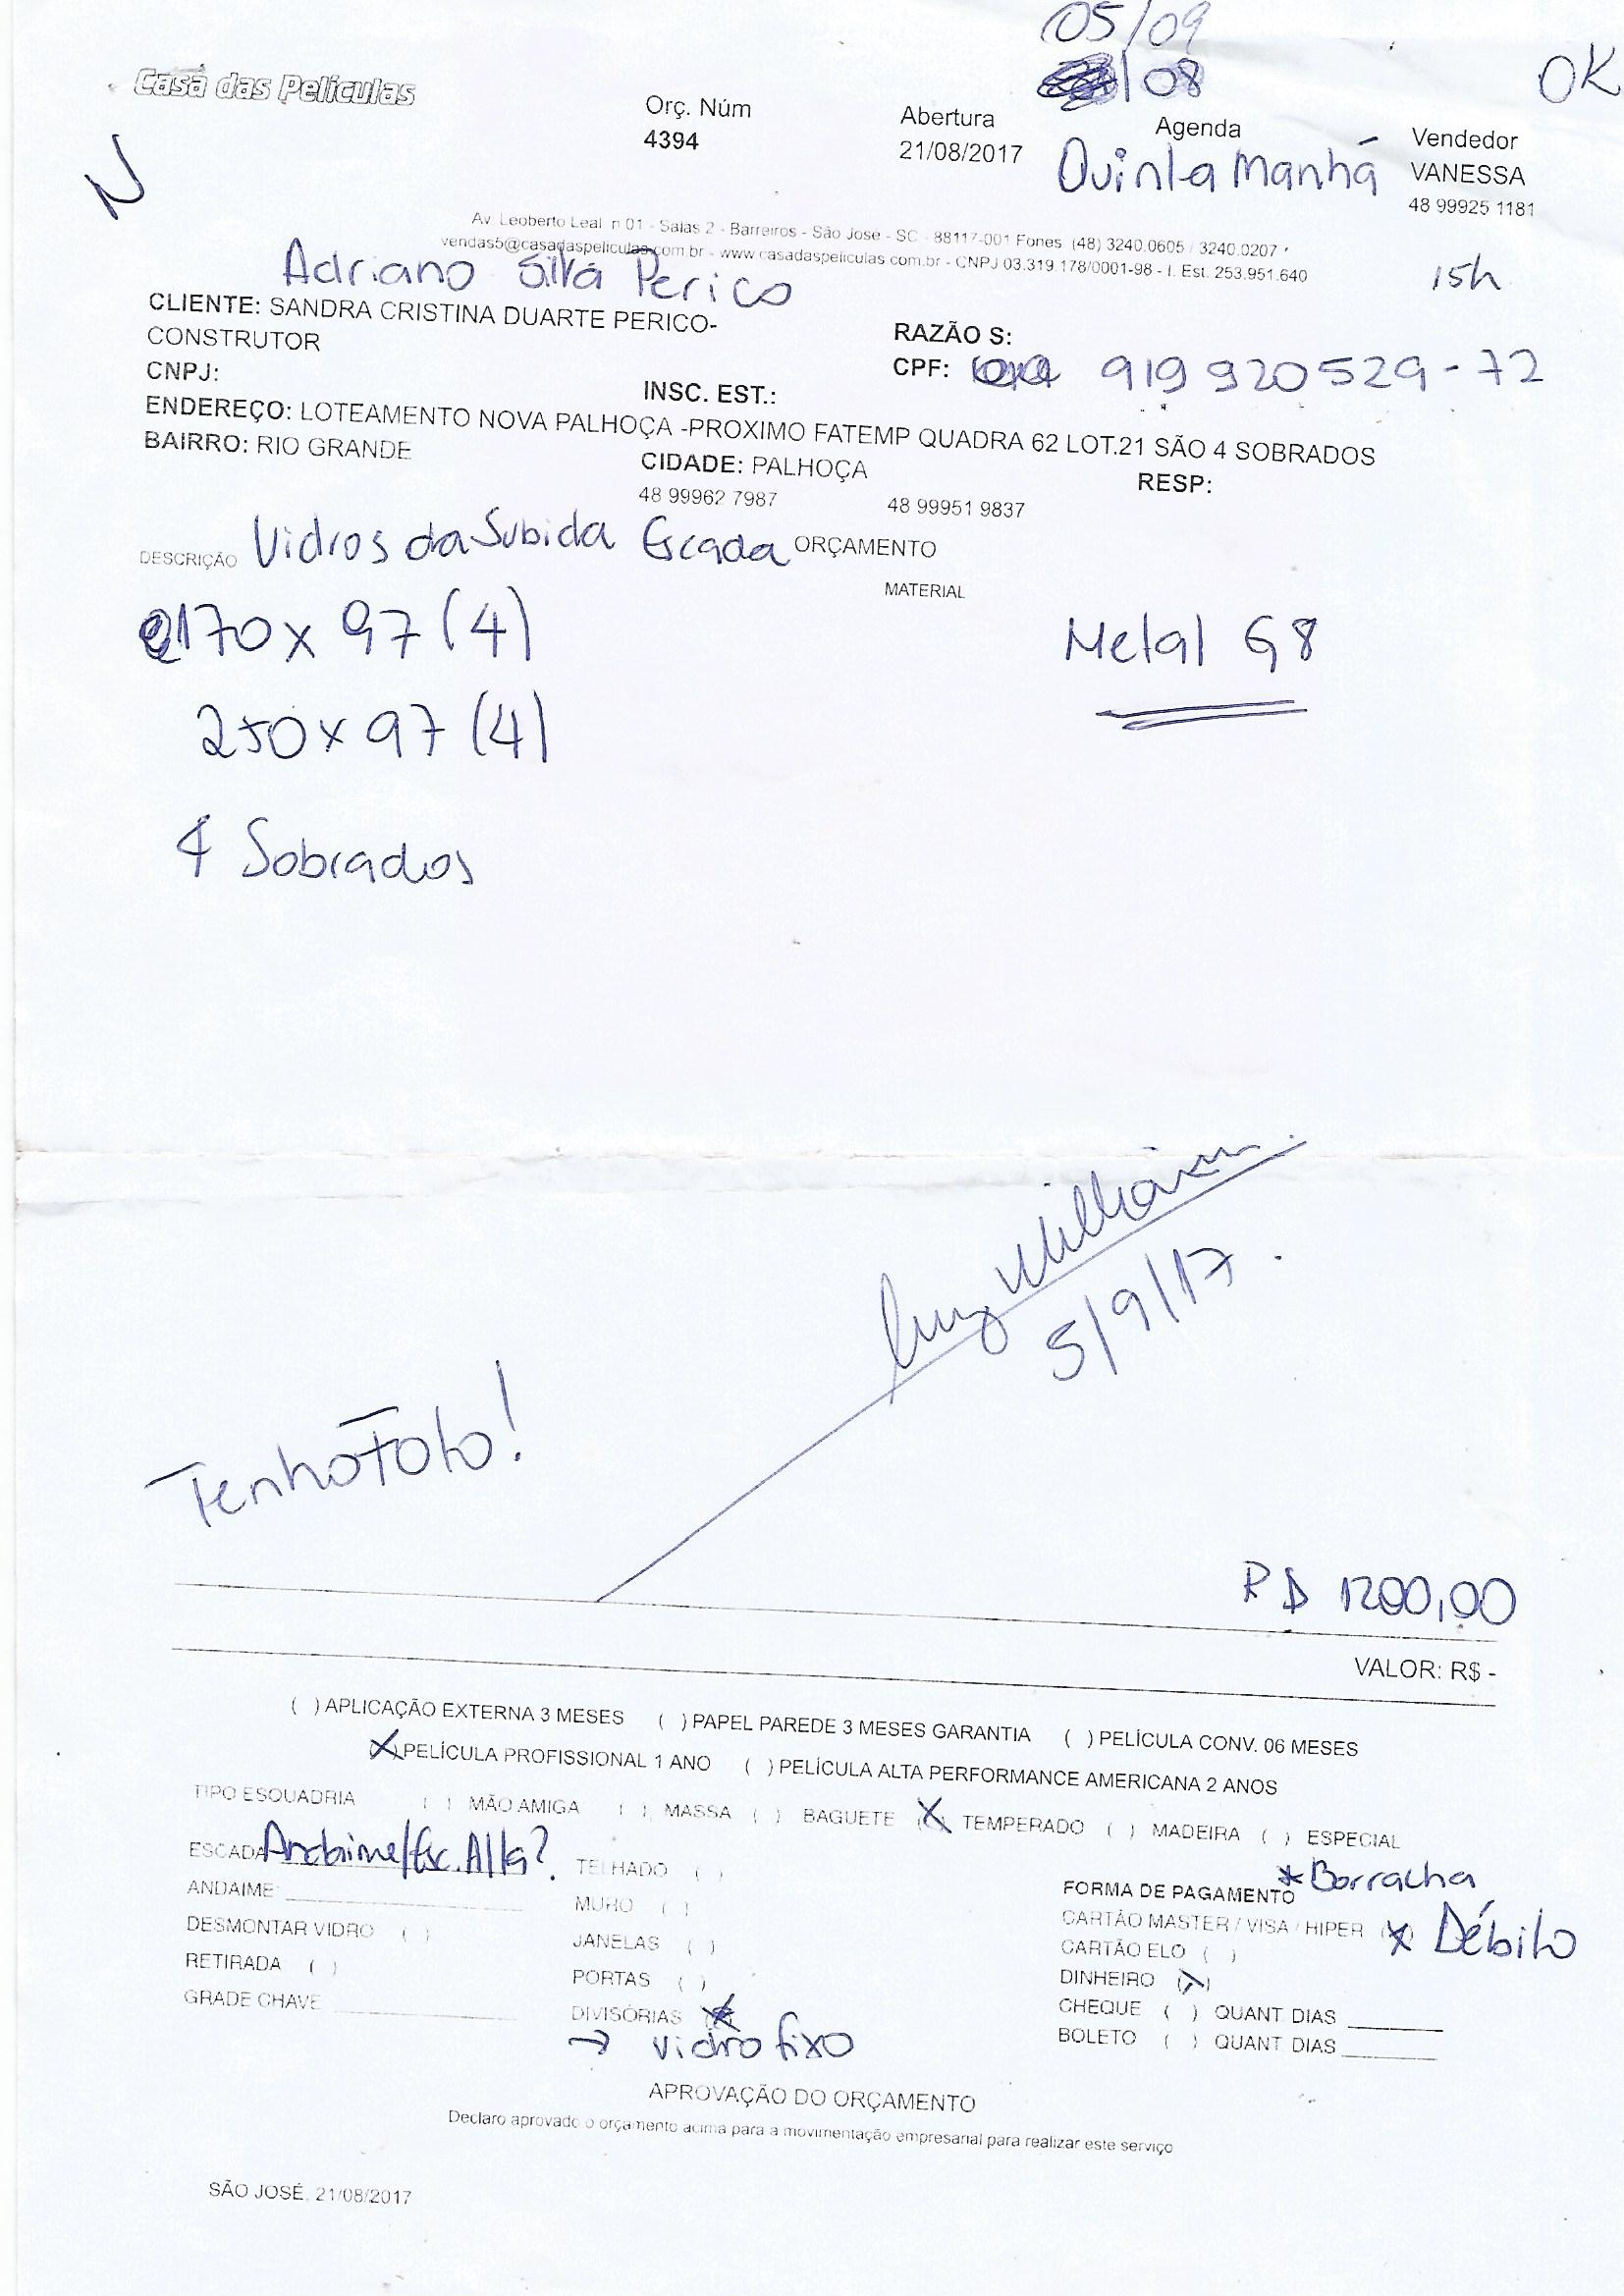 05/09
/08
OK
Casa das Películas
Orç. Núm
4394
Abertura
21/08/2017
Agenda
Quinta Manhã
Vendedor
VANESSA
48 99925 1181
N
Av. Leoberto Leal n 01 - Salas 2 - Barreiros - São José - SC - 88117-001 Fones (48) 3240.0605 / 3240.0207
vendas5@casadaspeliculas.com.br - www.casadaspeliculas.com.br - CNPJ 03.319.178/0001-98 - I. Est. 253.951.640
15h
Adriano Silva Perico
CLIENTE: SANDRA CRISTINA DUARTE PERICO-
CONSTRUTOR
RAZÃO S:
CNPJ:
CPF: 919 920529-72
INSC. EST.:
ENDEREÇO: LOTEAMENTO NOVA PALHOÇA -PROXIMO FATEMP QUADRA 62 LOT.21 SÃO 4 SOBRADOS
BAIRRO: RIO GRANDE
CIDADE: PALHOÇA
RESP:
48 99962 7987
48 99951 9837
DESCRIÇÃO Vidros da Subida Escada ORÇAMENTO
MATERIAL
170 x 97 (4)
Metal G8
250 x 97 (4)
4 Sobrados
5/9/17
Tenho Foto!
R$ 1200,00
VALOR: R$ -
( ) APLICAÇÃO EXTERNA 3 MESES ( ) PAPEL PAREDE 3 MESES GARANTIA ( ) PELÍCULA CONV. 06 MESES
(X) PELÍCULA PROFISSIONAL 1 ANO ( ) PELÍCULA ALTA PERFORMANCE AMERICANA 2 ANOS
TIPO ESQUADRIA ( ) MÃO AMIGA ( ) MASSA ( ) BAGUETE (X) TEMPERADO ( ) MADEIRA ( ) ESPECIAL
ESCADA Andaime/Esc. Alta?
TELHADO ( )
* Borracha
ANDAIME: ____________
MURO ( )
FORMA DE PAGAMENTO
DESMONTAR VIDRO ( )
JANELAS ( )
CARTÃO MASTER / VISA / HIPER (X) Débito
CARTÃO ELO ( )
RETIRADA ( )
PORTAS ( )
DINHEIRO (X)
GRADE CHAVE ____________
DIVISÓRIAS (X)
CHEQUE ( ) QUANT DIAS ________
→ vidro fixo
BOLETO ( ) QUANT DIAS ________
APROVAÇÃO DO ORÇAMENTO
Declaro aprovado o orçamento acima para a movimentação empresarial para realizar este serviço
SÃO JOSÉ, 21/08/2017